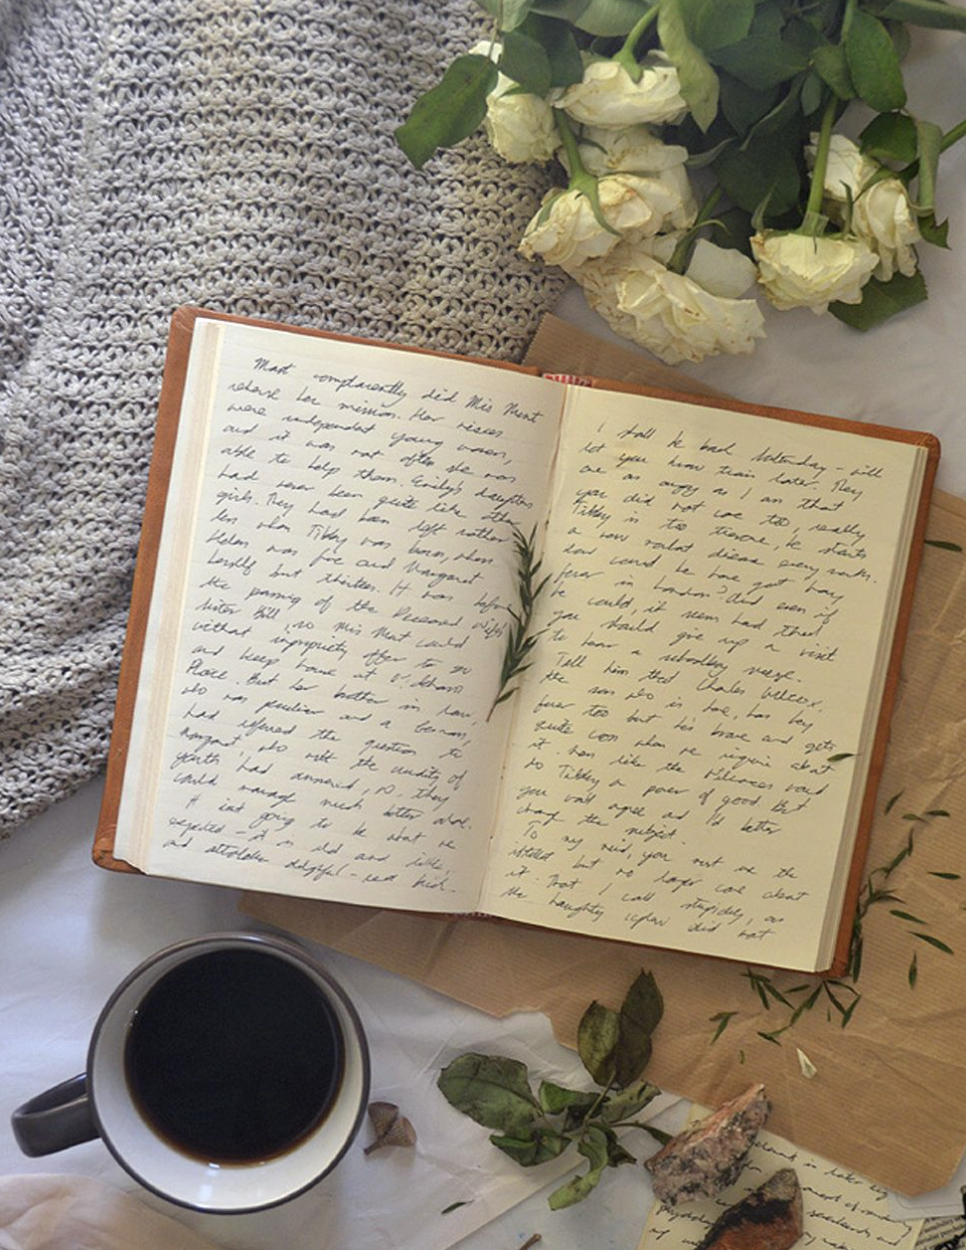 Most complacently did Miss Munt
rehearse her mission. Her nieces
were independent young women,
and it was not often she was
able to help them. Emily's daughters
had never been quite like other
girls. They had been left mother
less when Tibby was born, when
Helen was five and Margaret
herself but thirteen. It was before
the passing of the Deceased Wife's
Sister Bill, so Miss Munt could
without impropriety offer to go
and keep house at W. Scham
Place. But her brother in law,
who was peculiar and a German,
had referred the question to
Margaret, who with the crudity of
youth had answered, no, they
could manage much better alone.
It isnt going to be what we
expected - it is old and little,
and altogether delightful - red brick.
I shall be back Saturday - will
let you know train later. They
are as angry as I am that
you did not come too, really
Tibby is too tiresome, he starts
a new mortal disease every month.
How could he have got hay
fever in London? And even if
he could, it seems hard that
you should give up a visit
to hear a schoolboy sneeze.
Tell him that Charles Wilcox,
the son who is here, has hay
fever too but he's brave and gets
quite cross when we inquire about
it. Men like the Wilcoxes would
do Tibby a power of good But
you wont agree and I'd better
change the subject.
the
but no longer care about
it. That I call stupidity, as
the haughty did not